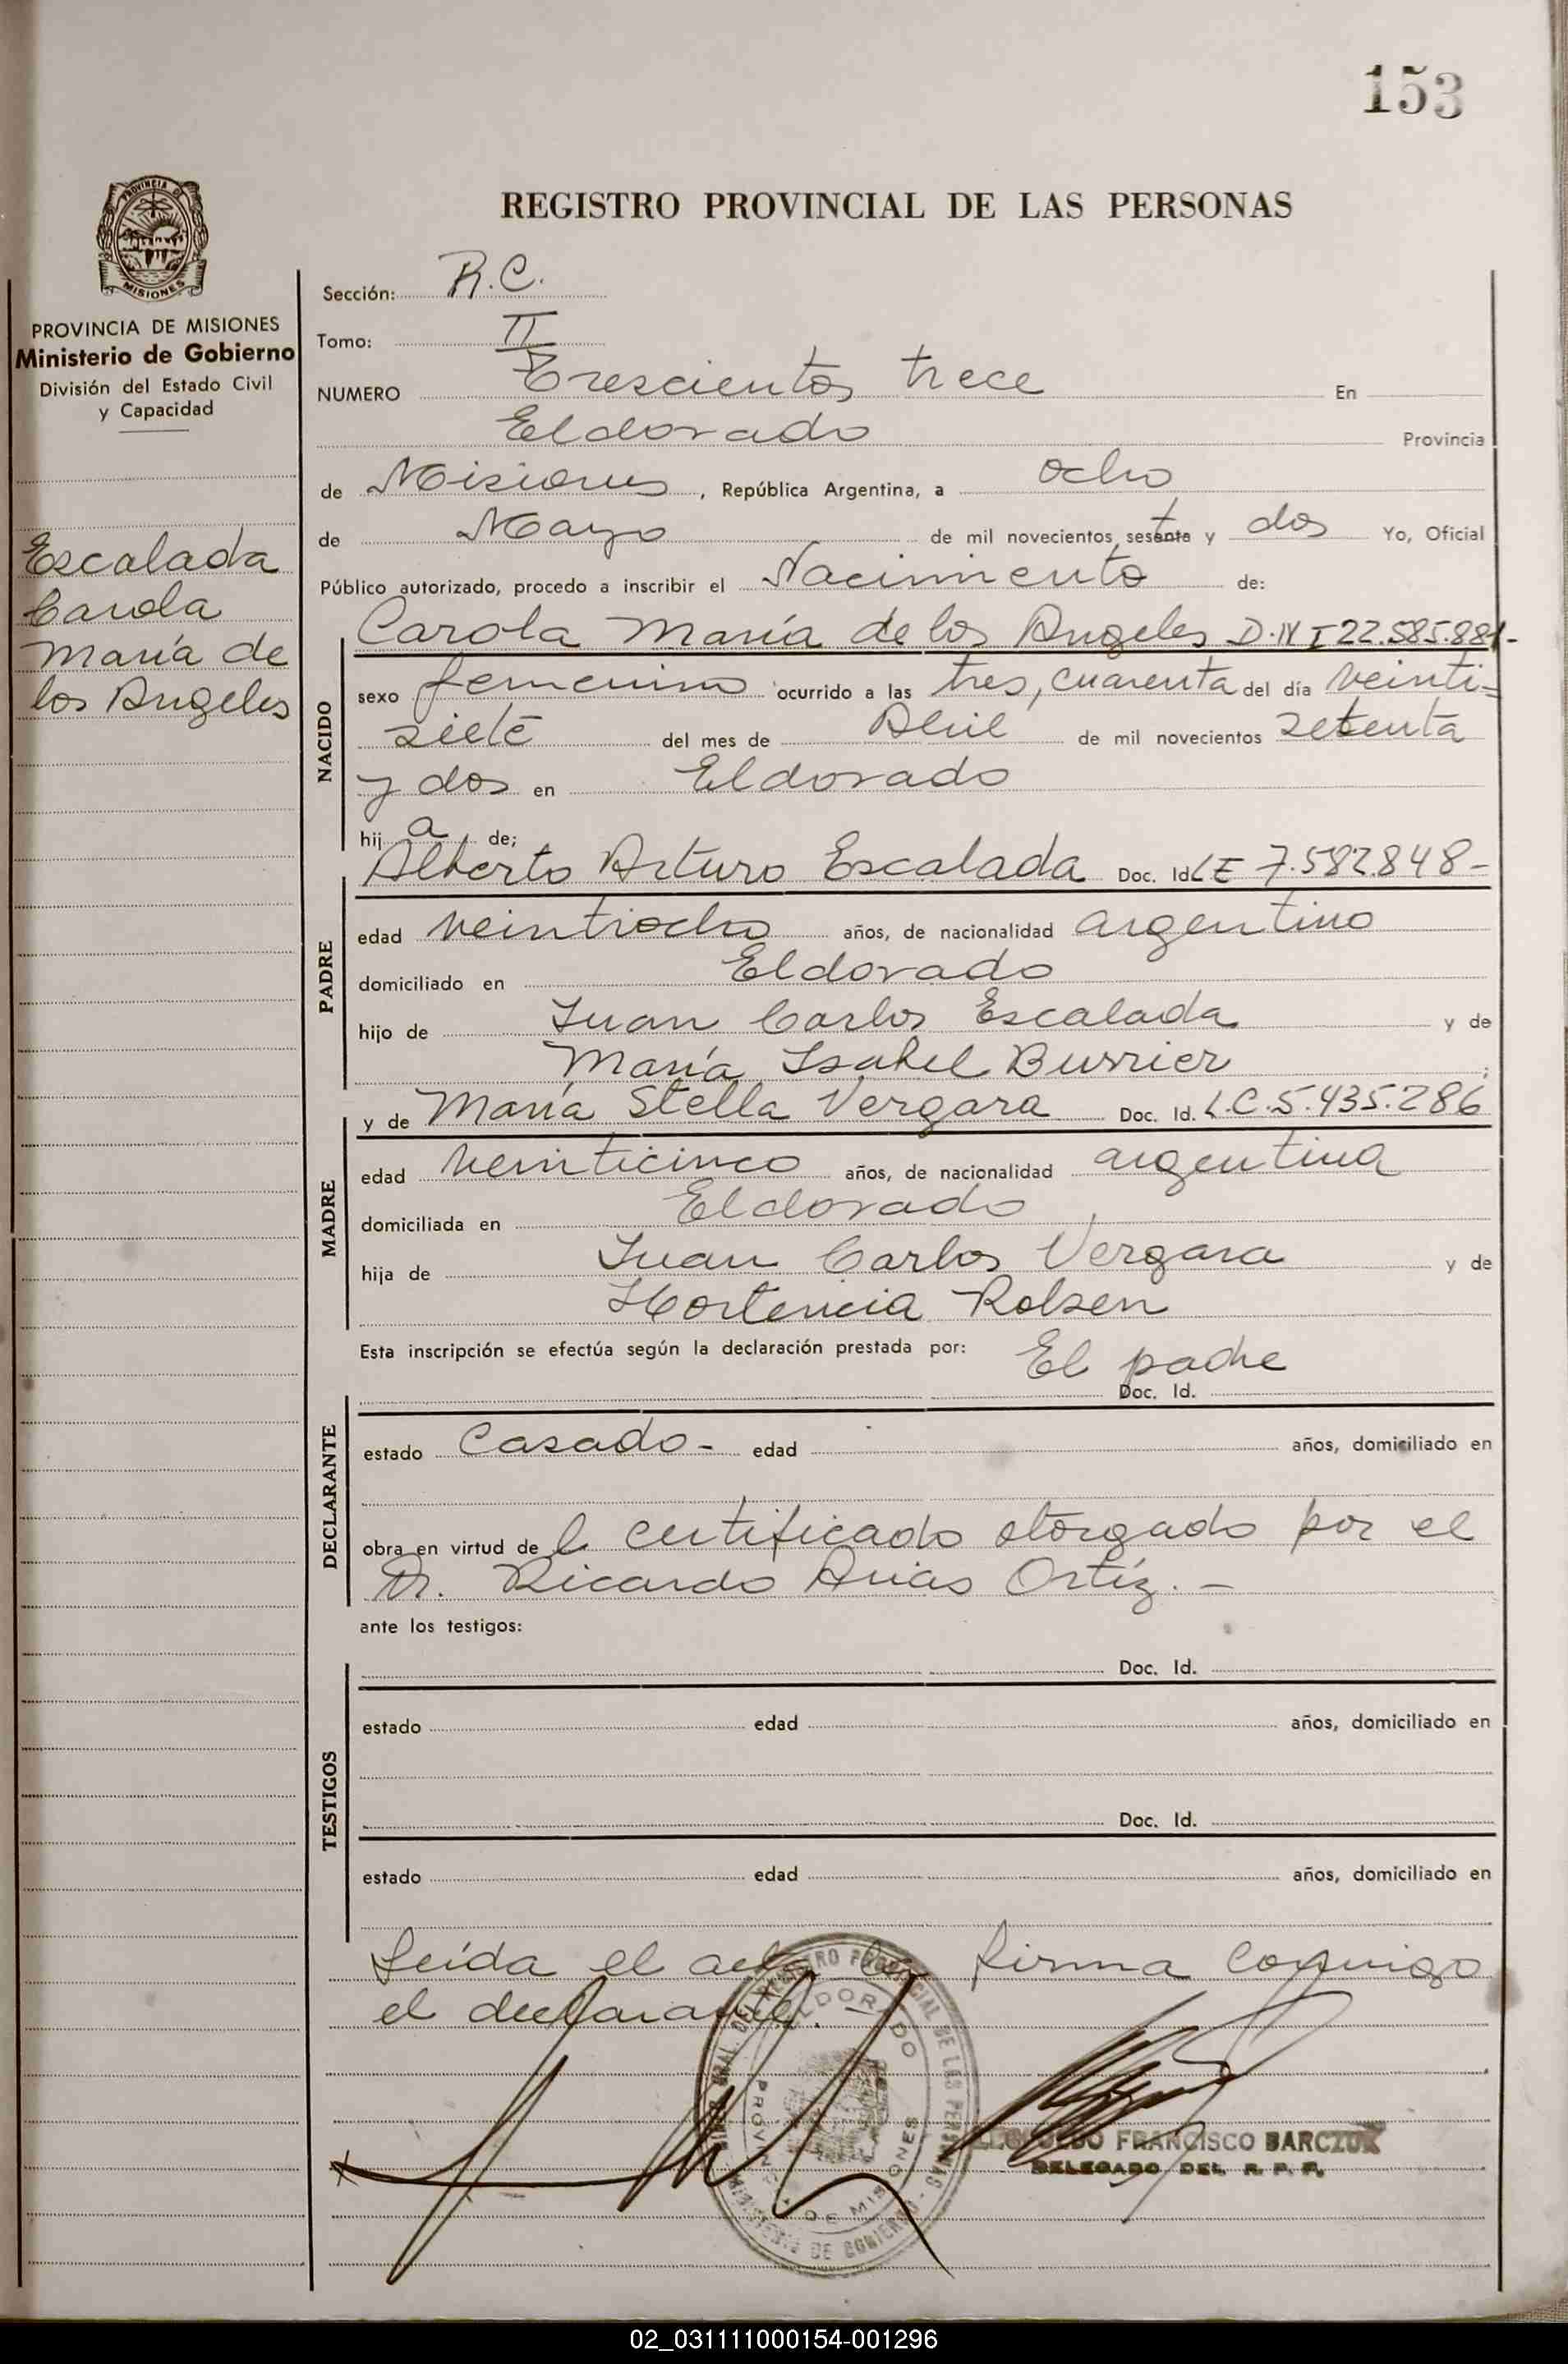 153
REGISTRO PROVINCIAL DE LAS PERSONAS
PROVINCIA DE
MISIONES
PROVINCIA DE MISIONES
Ministerio de Gobierno
División del Estado Civil
y Capacidad
Escalada
Carola
María de
los Angeles
Sección: R.C.
Tomo: II
NUMERO Trescientos trece En
Eldorado Provincia
de Misiones, República Argentina, a ocho
de Mayo de mil novecientos setenta y dos Yo, Oficial
Público autorizado, procedo a inscribir el Nacimiento de:
NACIDO
Carola María de los Angeles D.N.I 22.585.881-
sexo femenino ocurrido a las tres, cuarenta del día veinti=
siete del mes de Abril de mil novecientos setenta
y dos en Eldorado
hij a de;
PADRE
Alberto Arturo Escalada Doc. Id. LE 7.582.848-
edad veintiocho años, de nacionalidad argentino
domiciliado en Eldorado
hijo de Juan Carlos Escalada y de
María Isabel Burrier;
MADRE
y de María Stella Vergara Doc. Id. L.C.5.435.286
edad veinticinco años, de nacionalidad argentina
domiciliada en Eldorado
hija de Juan Carlos Vergara y de
Hortencia Rolsen
Esta inscripción se efectúa según la declaración prestada por: El padre
Doc. Id.
DECLARANTE
estado Casado- edad años, domiciliado en
obra en virtud de l certificado otorgado por el
Dr. Ricardo Arias Ortíz.-
ante los testigos:
TESTIGOS
Doc. Id.
estado edad años, domiciliado en
Doc. Id.
estado edad años, domiciliado en
Leída el acta la firma conmigo
el declarante.
REGISTRO PROVINCIAL DE LAS PERSONAS
MINISTERIO DE GOBIERNO
ELDORADO
PROVINCIA DE MISIONES
FRANCISCO BARCZUK
DELEGADO DEL R. P. P.
02_031111000154-001296